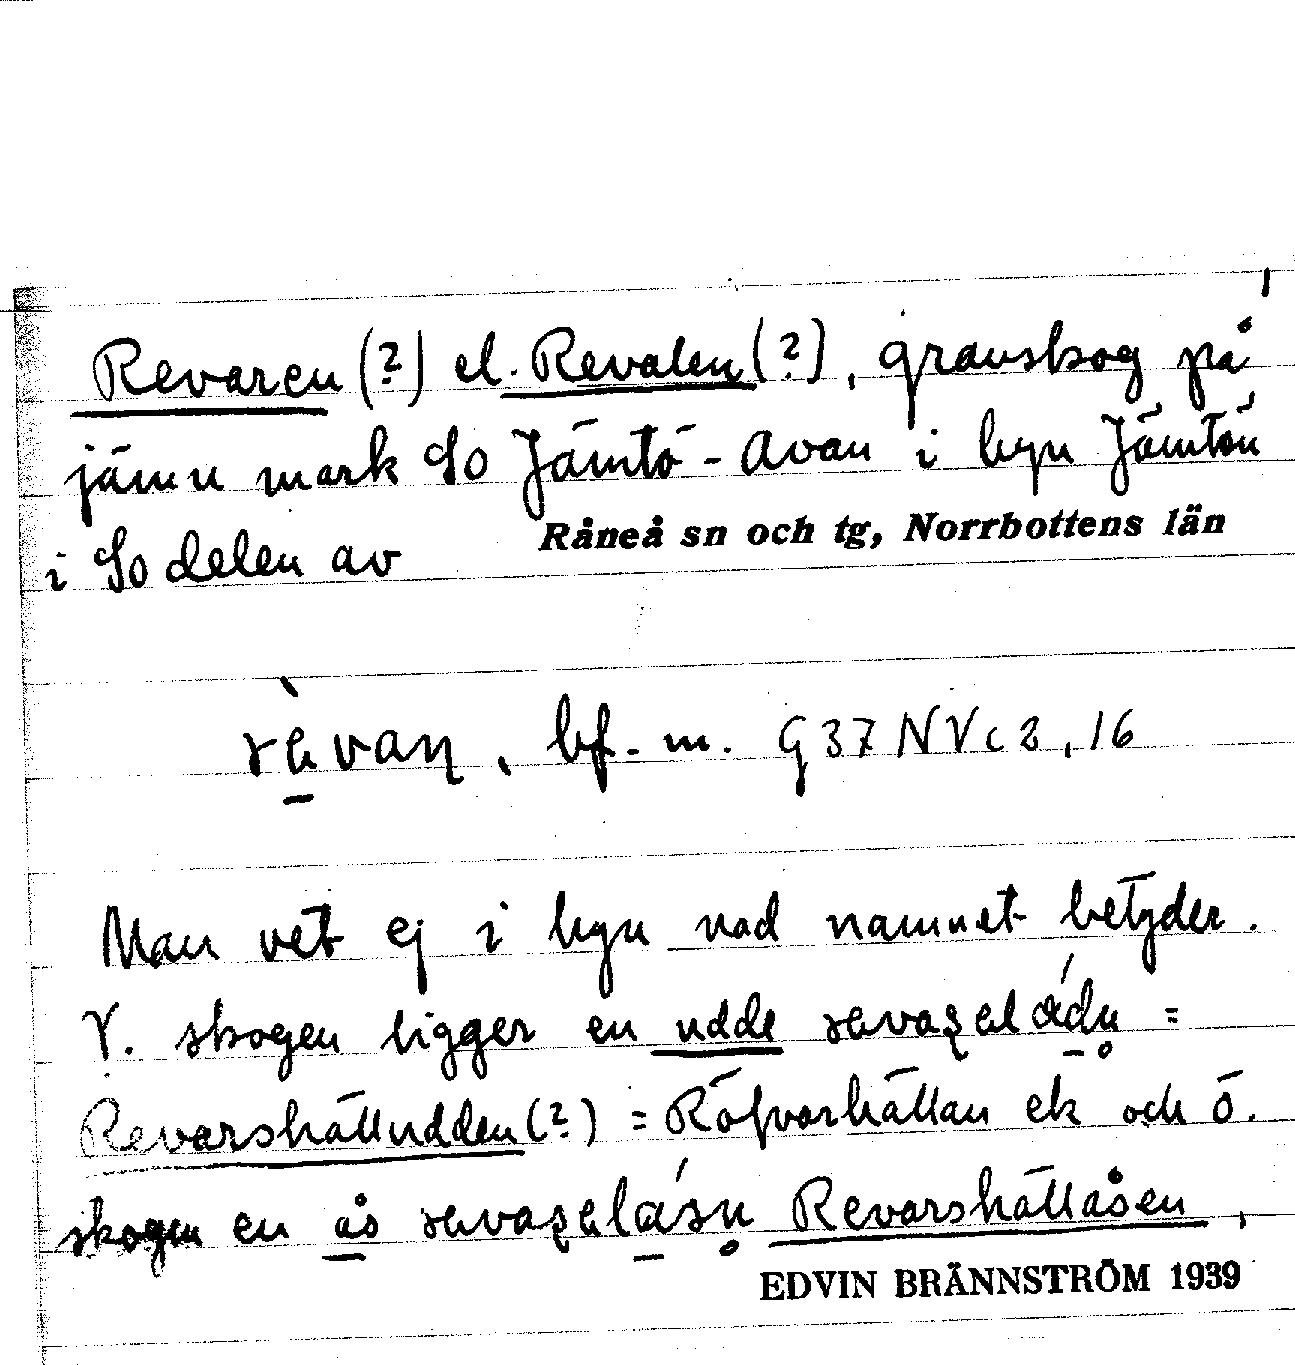 Revaren (?) el. Revalen (?), granskog på
jämn mark So Jämtö-Avan i byn Jämtön
i So delen av Råneå sn och tg, Norrbottens län
bf. m. G37NVc2,16
Man vet ej i byn vad namnet betyder.
V. skogen ligger en udde =
Revarshälludden (?) = Röfvarhällan ek och ö.
skogen en ås Revarshällåsen,
EDVIN BRÄNNSTRÖM 1939